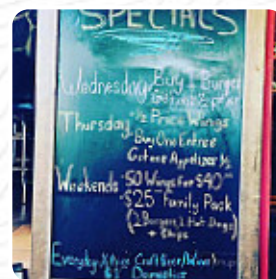 SPECIALS
Wednesday Buy 1 Burger
Get one ½ price
Thursday ½ Price Wings
Buy One Entree
Get one Appetizer ½
Weekends 50 Wings for $40
$25 Family Pack
(2 Burgers 2 Hot Dogs)
+ Chips
Everyday Craft Beer
$1 Domestic